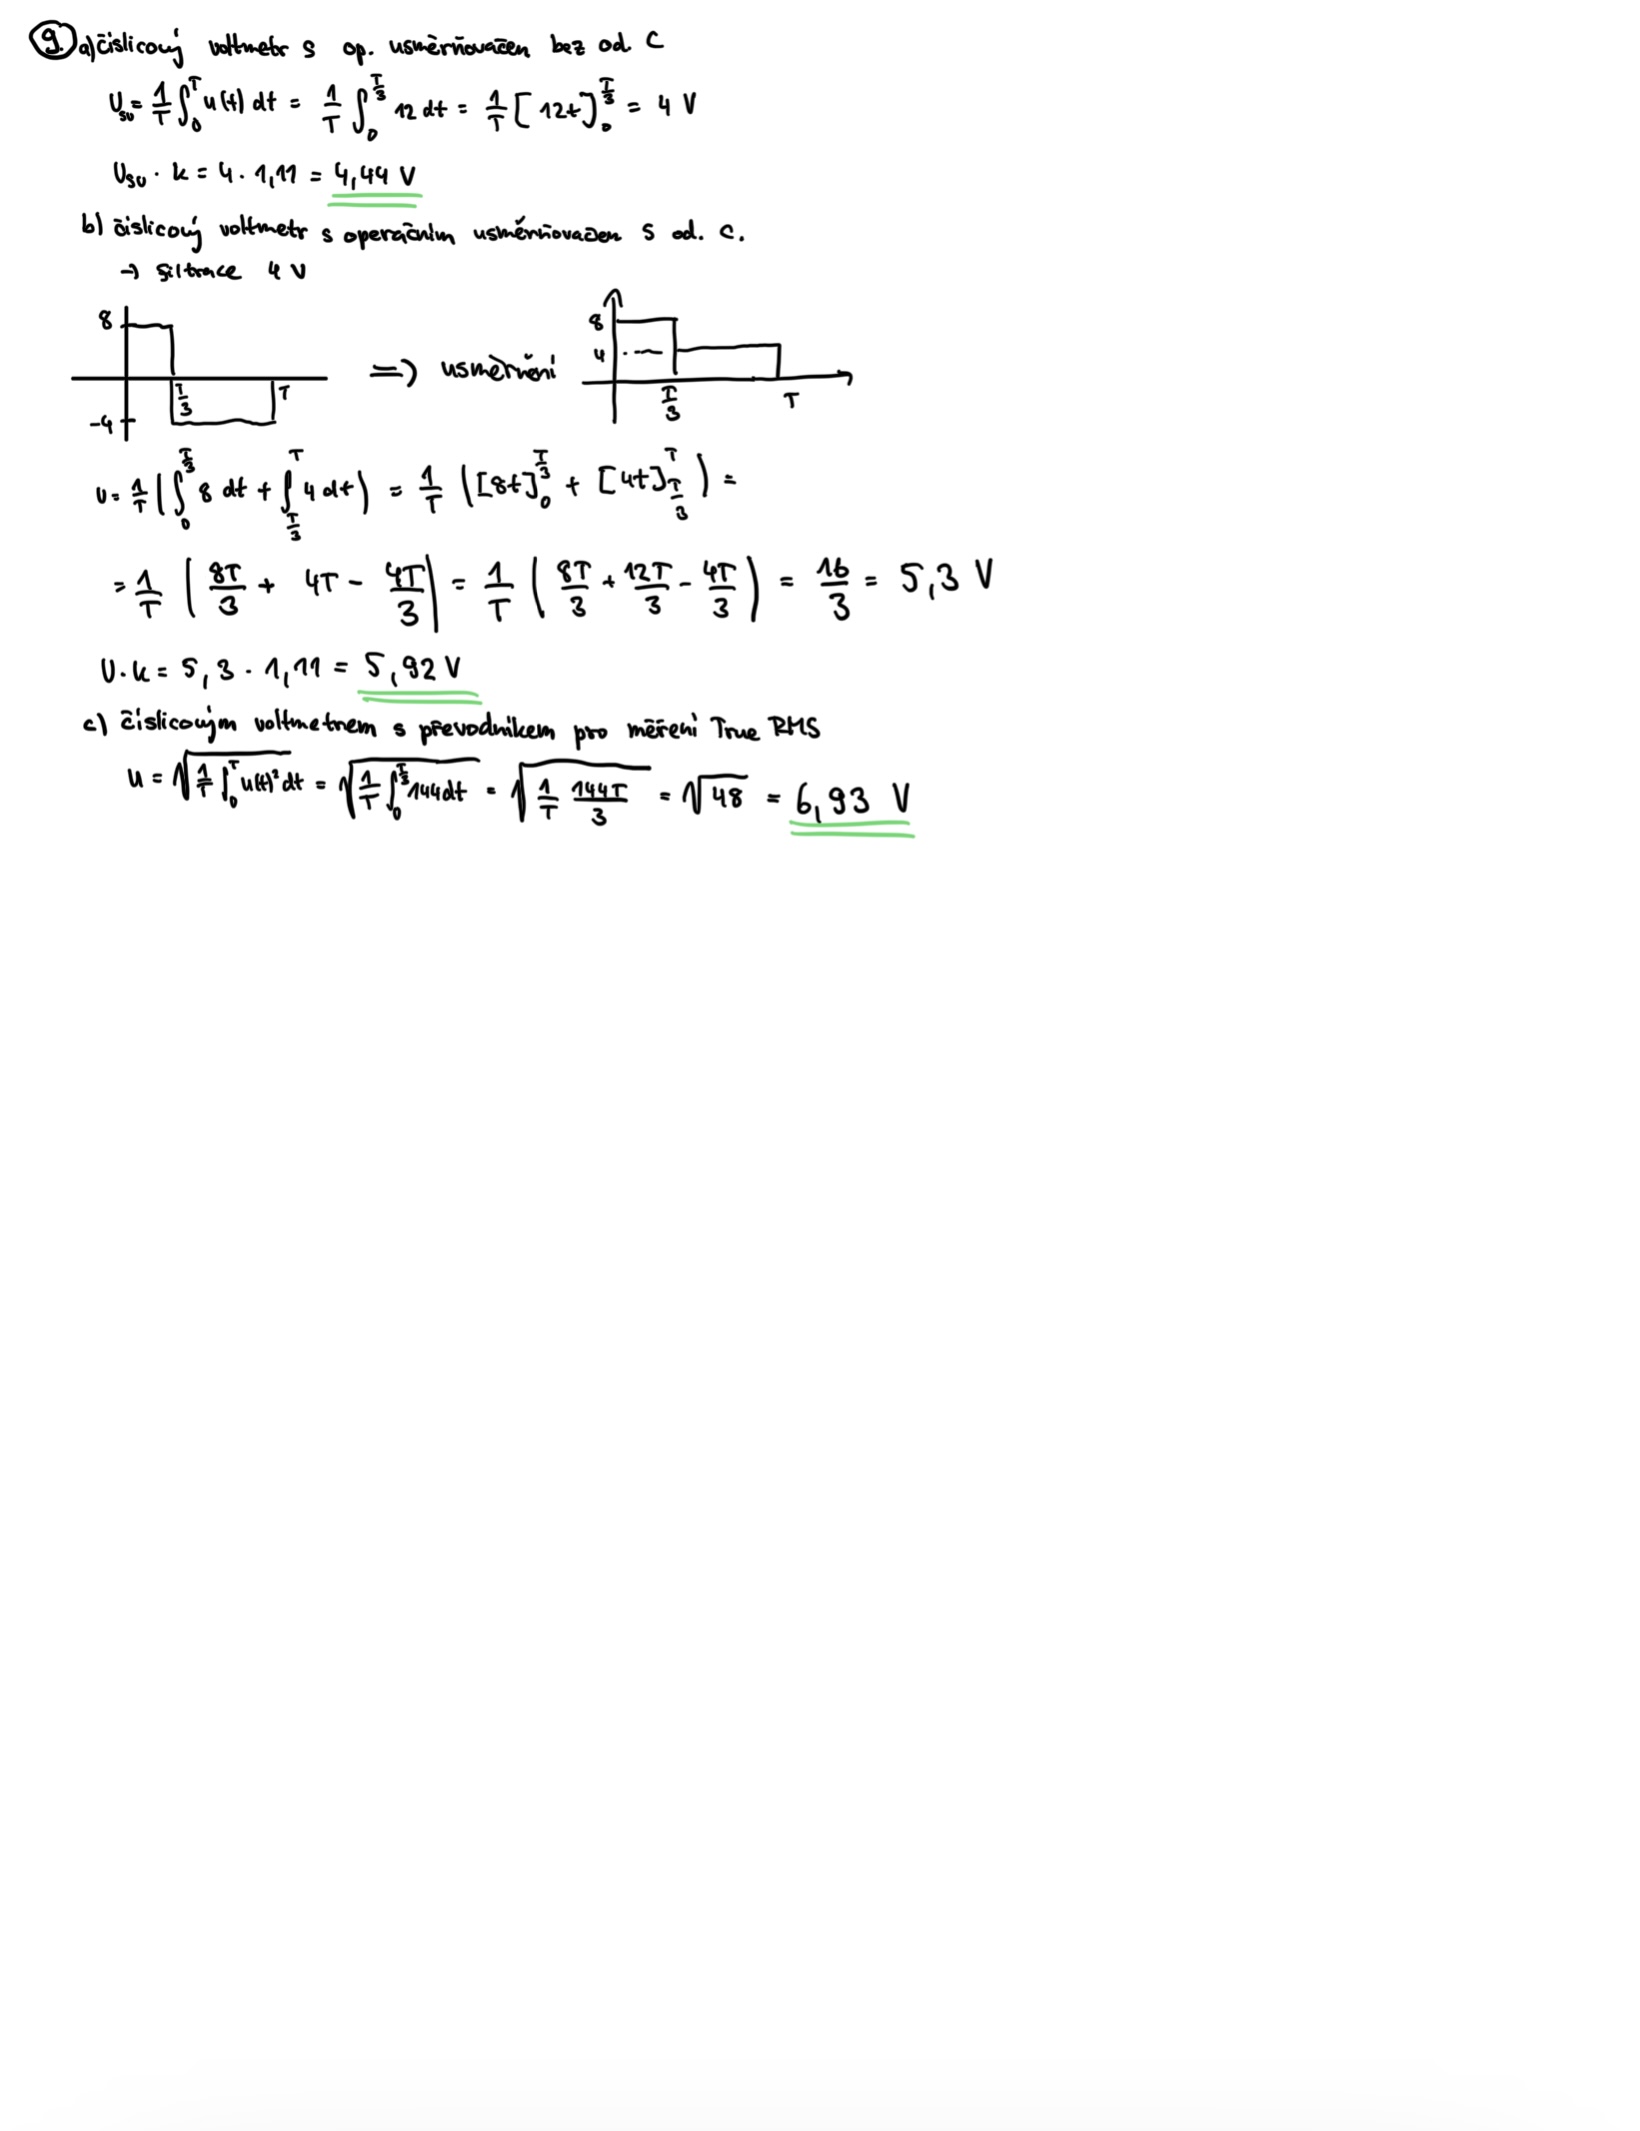 9. a) číslicový voltmetr s op. usměrňovačem bez od. C
U_SU = 1/T ∫_0^T u(t) dt = 1/T ∫_0^{T/3} 12 dt = 1/T [12t]_0^{T/3} = 4 V
U_SU · k = 4 · 1,11 = 4,44 V
b) číslicový voltmetr s operačním usměrňovačem s od. C.
→ filtrace 4 V
8 -4 T/3 T ⇒ usměrnění 8 4 T/3 T
U = 1/T (∫_0^{T/3} 8 dt + ∫_{T/3}^T 4 dt) = 1/T ([8t]_0^{T/3} + [4t]_{T/3}^T) =
= 1/T (8T/3 + 4T - 4T/3) = 1/T (8T/3 + 12T/3 - 4T/3) = 16/3 = 5,3 V
U·k = 5,3 · 1,11 = 5,92 V
c) číslicovým voltmetrem s převodníkem pro měření True RMS
U = √(1/T ∫_0^T u(t)² dt) = √(1/T ∫_0^{T/3} 144 dt) = √(1/T 144T/3) = √48 = 6,93 V